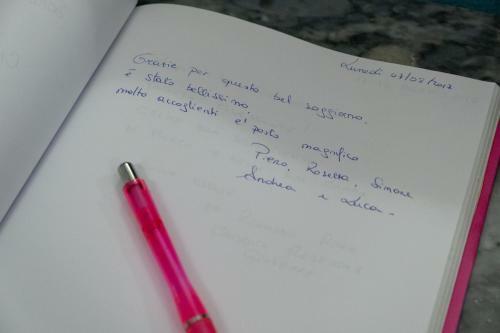 Lunedì 07/08/2017
Grazie per questo bel soggiorno.
é stato bellissimo,
molto accoglienti e' posto magnifico
Piero, Rosetta, Simone
Andrea e Luca.